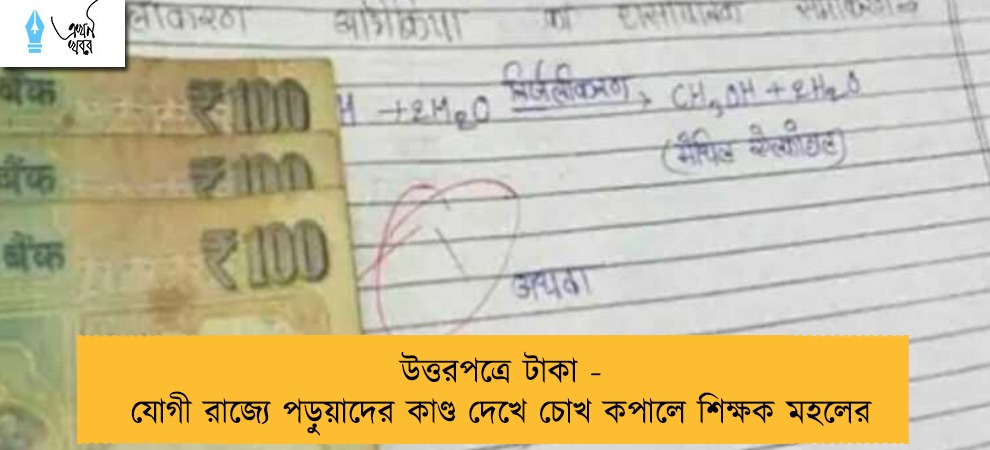 এখন
খবর
अभिक्रिया का रासायनिक समीकरण
बैंक ₹100
H + 2H₂O निर्जलीकरण → CH₃OH + 2H₂O
(मैथिल ऐल्कोहॉल)
बैंक ₹100
बैंक ₹100
अथवा
উত্তরপত্রে টাকা -
যোগী রাজ্যে পড়ুয়াদের কাণ্ড দেখে চোখ কপালে শিক্ষক মহলের